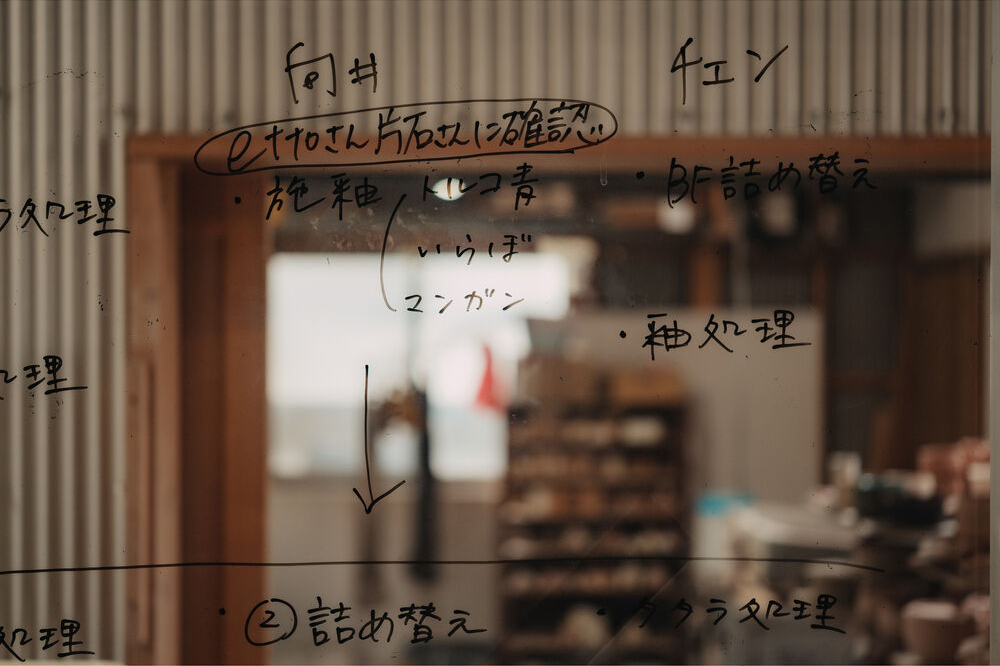 向井
チェン
ettoさん片石さんに確認
・施釉 トルコ青
いらぼ
マンガン
・BF詰め替え
ラ処理
・釉処理
処理
・②詰め替え
・タタラ処理
処理